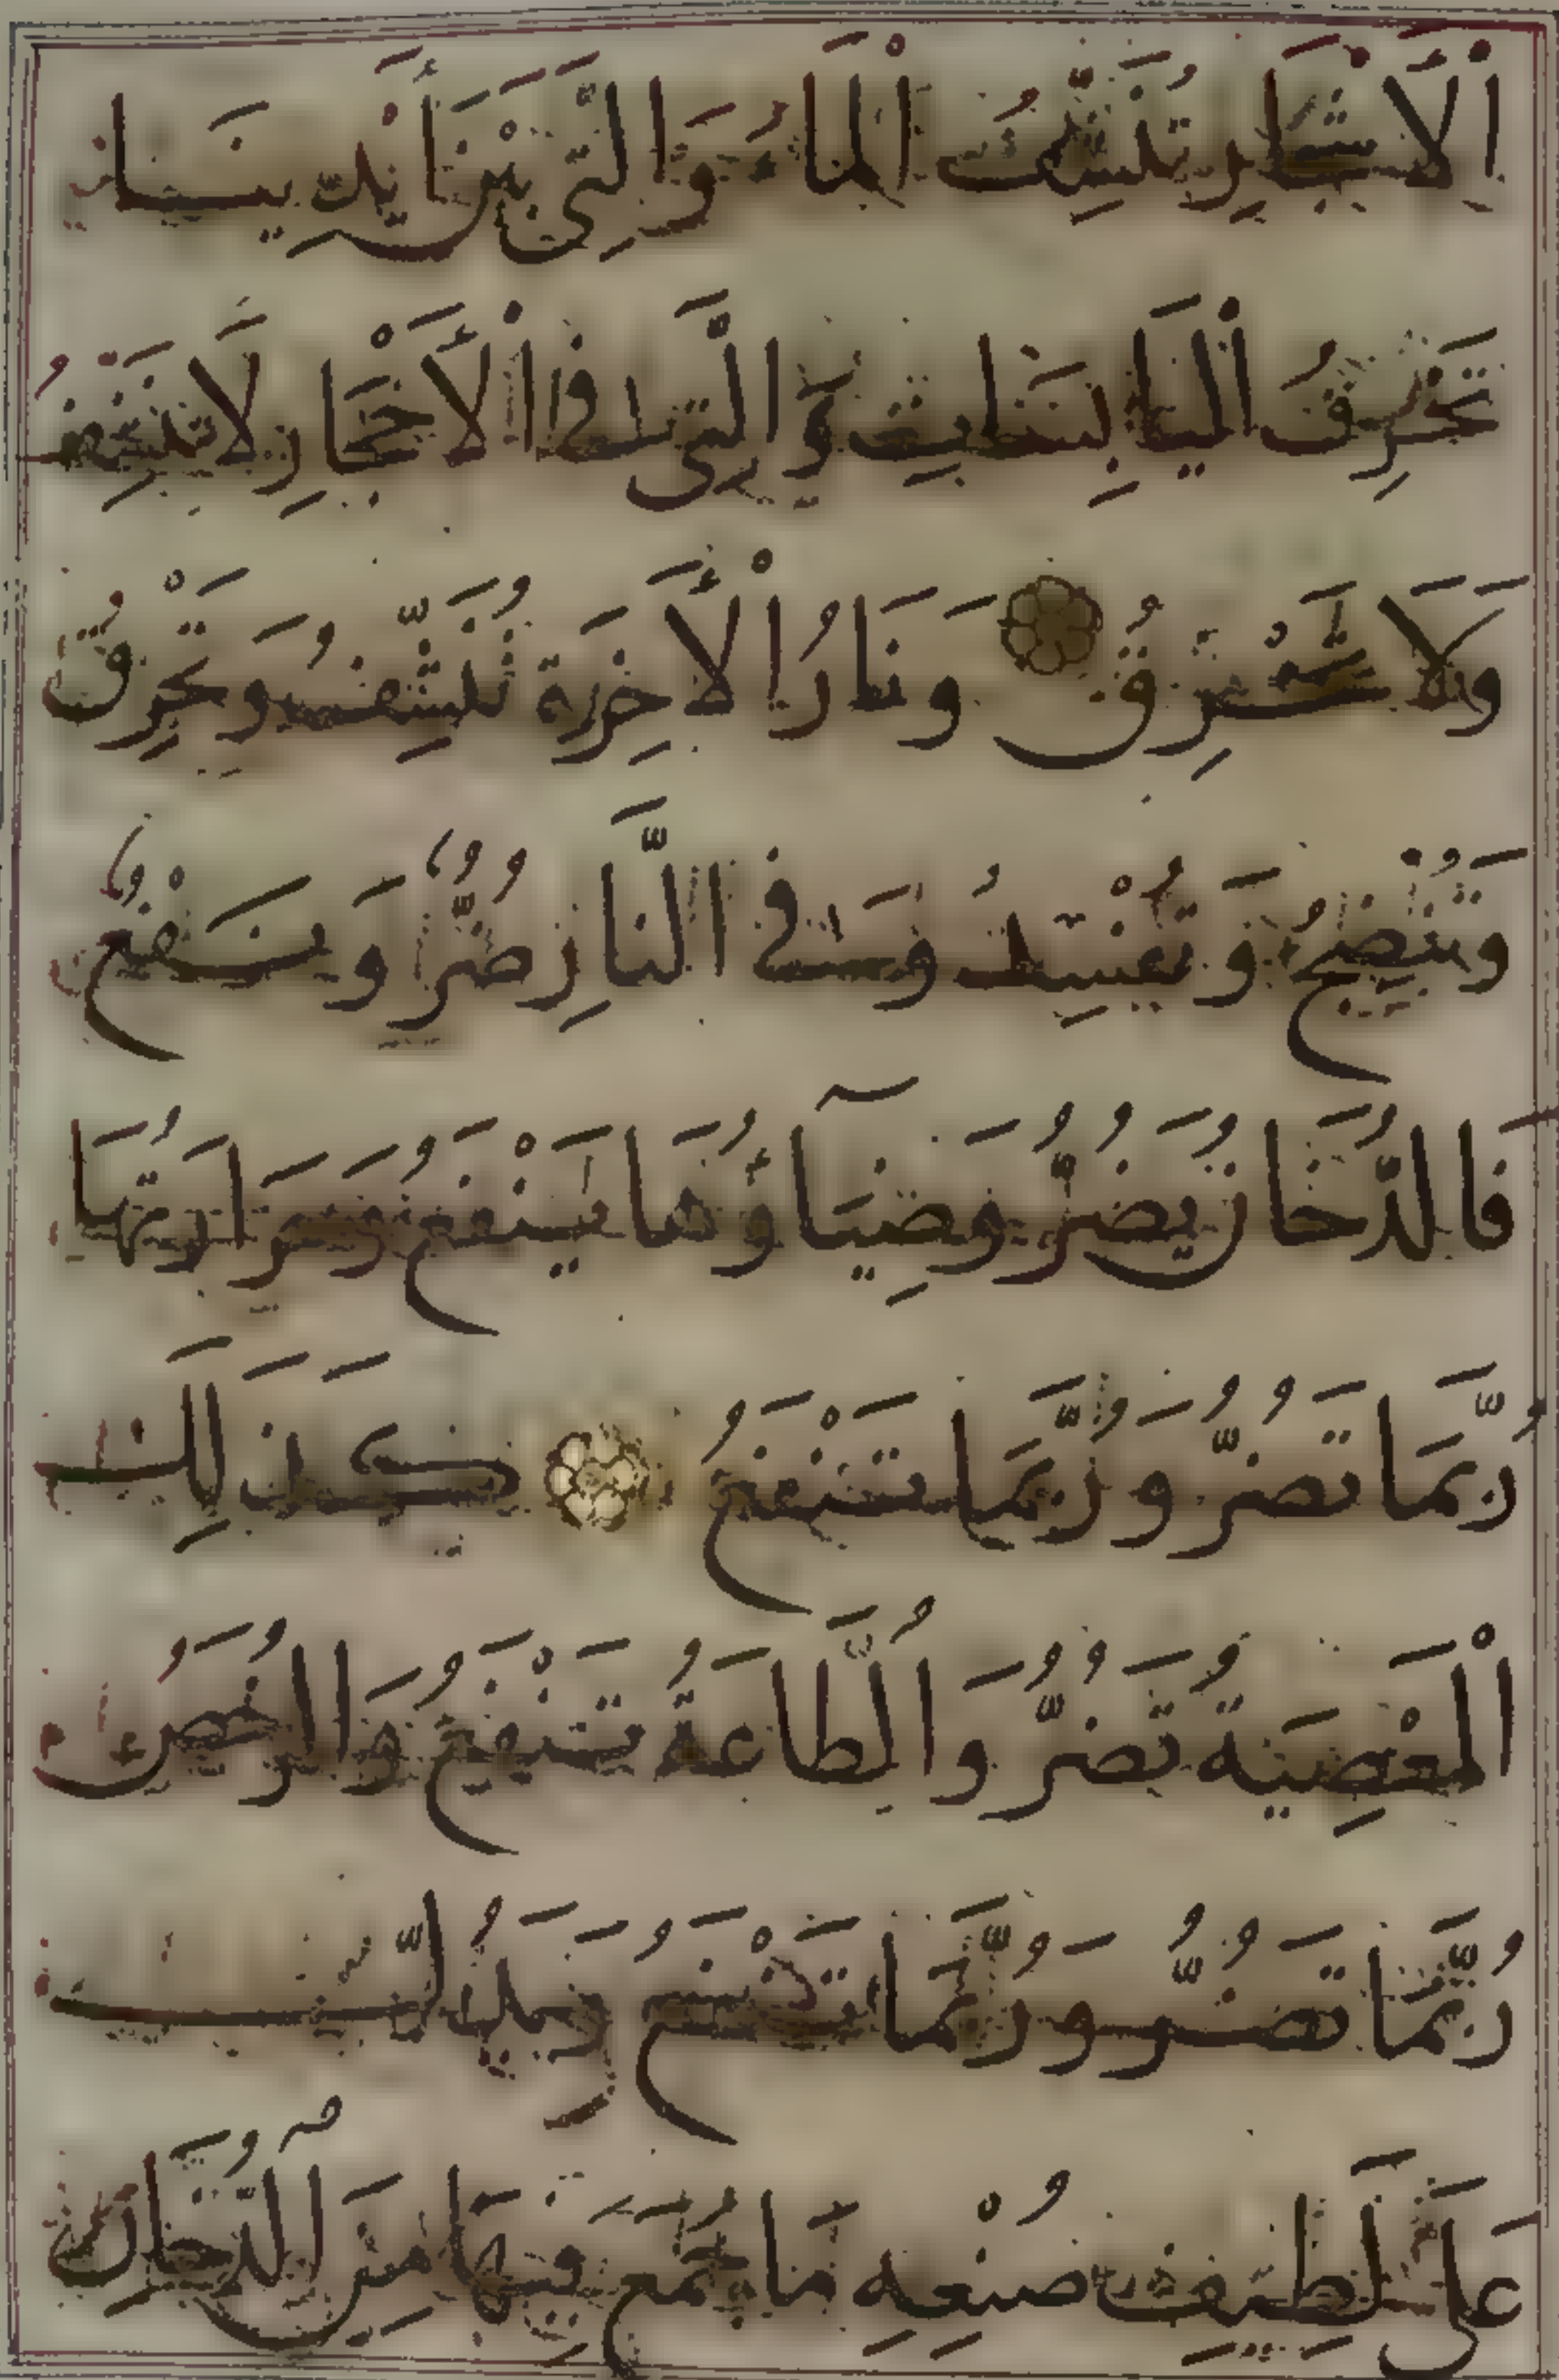 اَلْأَشْجَارِ تُنَشِّفُ اَلْمَاءَ وَالَّتِي بَيْنَ أَيْدِينَا
تَحْرِقُ اَلْيَابِسَاتِ وَالَّتِي فِي اْلأَحْجَارِ لَا تُنَشِّفُ
وَلَا تُحْرِقُ وَنَارُ اْلأَخِرَةِ تُنَشِّفُ وَتَحْرِقُ
وَتُنْضِجُ وَتُفْسِدُ وَفِي النَّارِ ضُرٌّ وَنَفْعٌ
فَالدُّخَانُ يَضُرُّ وَضِيَآؤُهَا يَنْفَعُ وَحَرَارَتُهَا
رُبَّمَا تَضُرُّ وَرُبَّمَا تَنْفَعُ كَذَلِكَ
اَلْمَعْصِيَةُ تَضُرُّ وَالطَّاعَةُ تَنْفَعُ وَالرُّخَصُ
رُبَّمَا تَضُرُّ وَرُبَّمَا تَنْفَعُ وَيَدُلُّكَ
عَلَى لَطِيفِ صُنْعِهِ مَا جَمَعَ فِيهَا مِنَ الدُّخَانِ